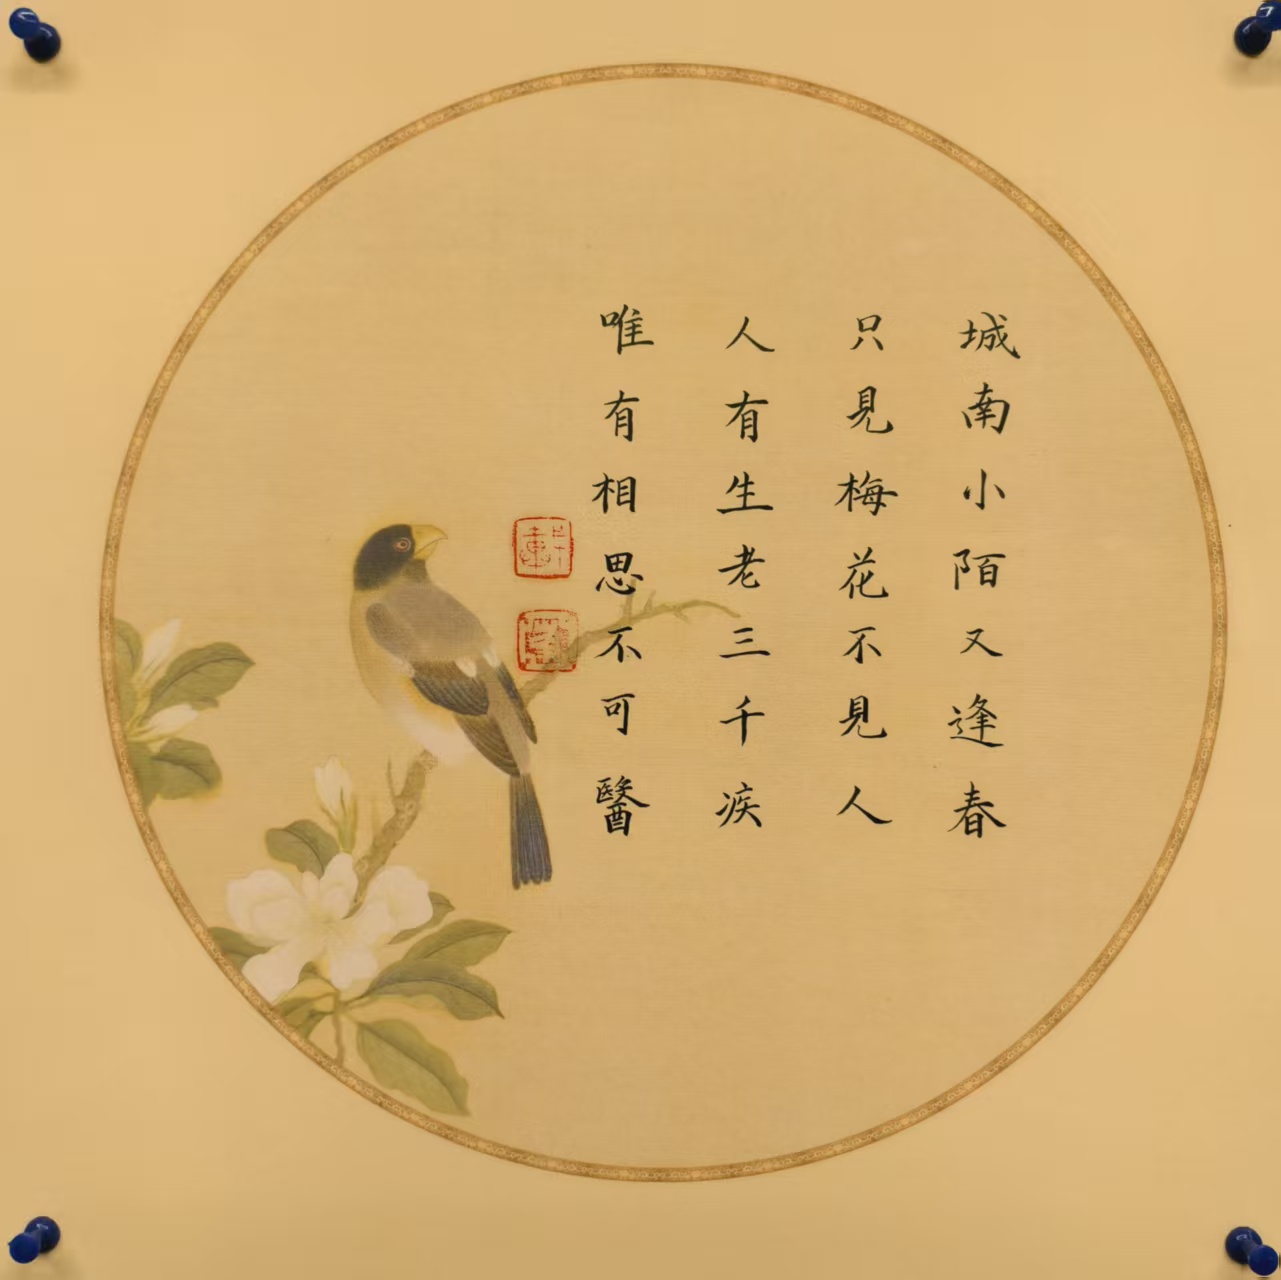 城南小陌又逢春
只見梅花不見人
人有生老三千疾
唯有相思不可醫